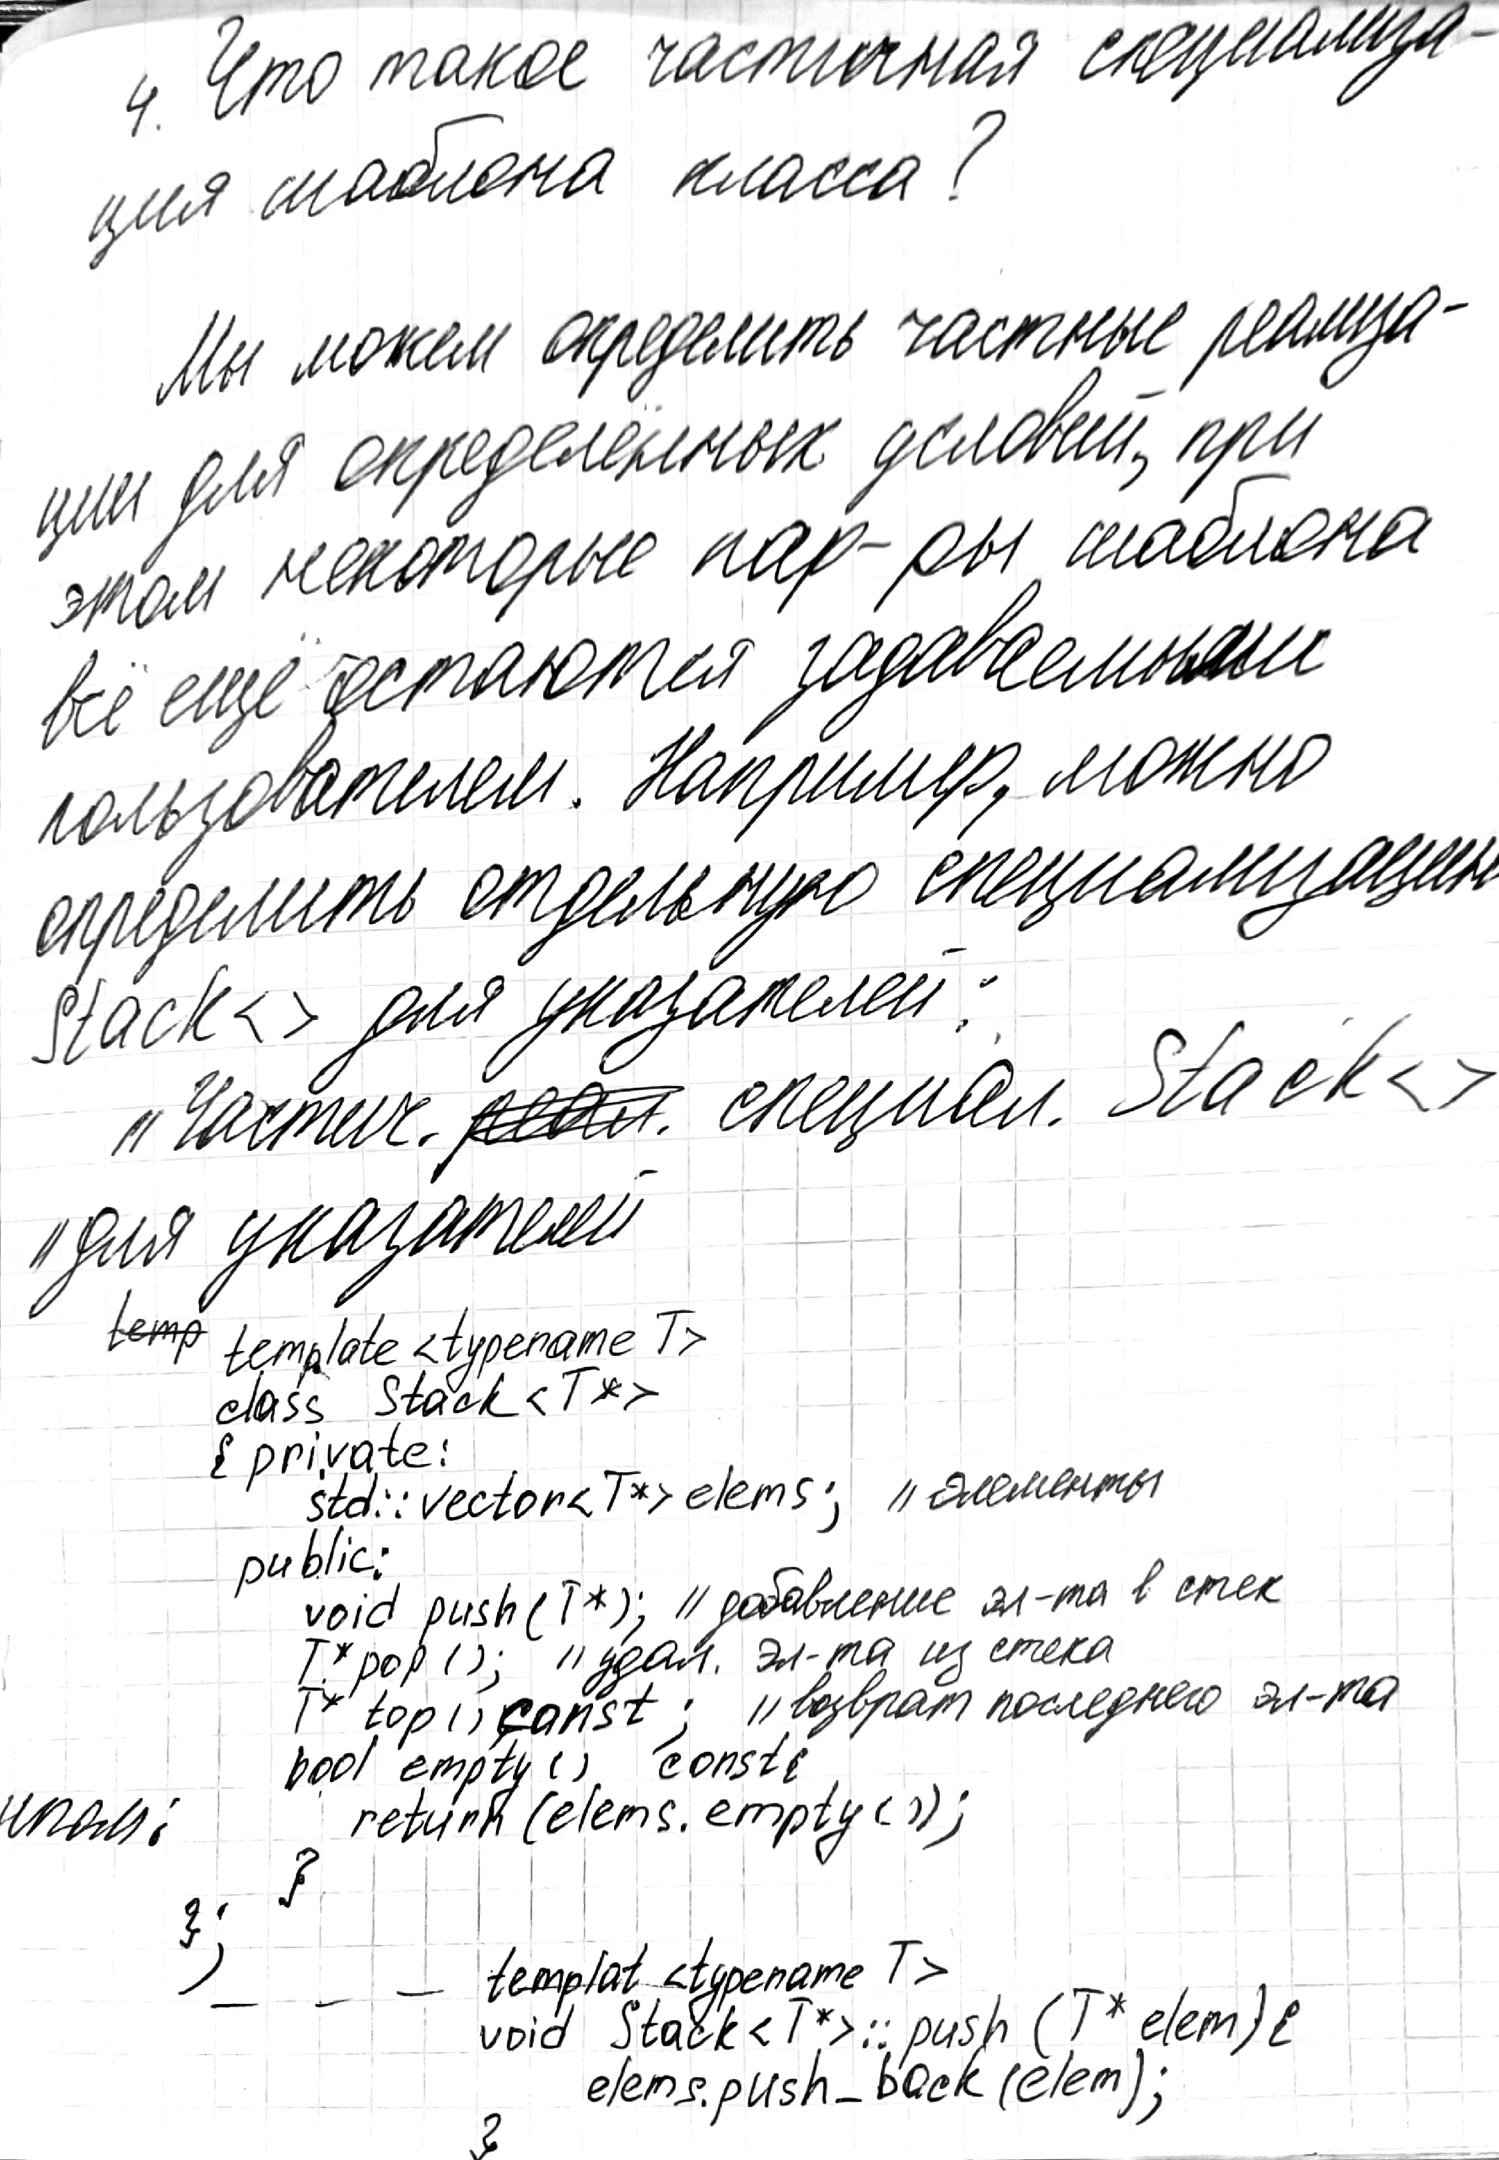 4. Что такое частичная специализа-
ция шаблона класса?
Мы можем определить частные реализа-
ции для определённых условий, при
этом некоторые пар-ры шаблона
всё ещё остаются задаваемыми
пользователем. Например, можно
определить отдельную специализацию
Stack<> для указателей:
// Частич. реал. специал. Stack<>
// для указателей
temp template <typename T>
class Stack<T*>
{ private:
std::vector<T*> elems; // элементы
public:
void push(T*); // добавление эл-та в стек
T* pop(); // удал. эл-та из стека
T* top() const; // возврат последнего эл-та
bool empty() const{
return (elems.empty());
}
};
templat <typename T>
void Stack<T*>::push (T* elem){
elems.push_back(elem);
}